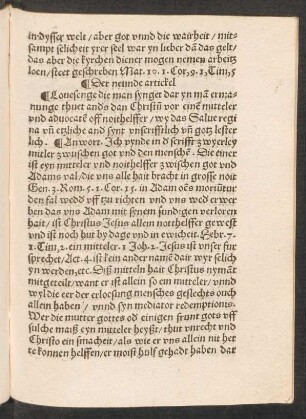 in dyſſer welt / aber got vnnd die wairheit / mit-
ſampt ſelicheit yrer ſeel war yn lieber dā das gelt/
das aber die kyrchen diener mogen nemen arbeitz
loen / ſteet geſchreben Mat. 10. 1. Cor, 9. 1, Tim, 5
¶ Der neunde artickel
¶ Loueſenge die man ſynget dar yn mā erma-
nunge thuet ands dan Chriſtū vor eine mitteler
vnd aduocatē oſſ noithelffer / wy das Salue regi
na vn̄ etzliche and ſynt vnſcrifftlich vn̄ gotz leſter
lich. ¶ Antwort. Ich vynde in d ſcrifft zwyerley
mitler zwuſchen got vnd den menſchē. Die einer
iſt eyn mitteler vnd noithelffer zwiſchen got vnd
Adams val / die vns alle hait bracht in groſſe noit
Gen. 3. Rom. 5. 1. Cor. 15. in Adam oēs moriūtur
den fal wedd vff tzu richten vnd vns wed erwer
ben das vns Adam mit ſynem ſundigen verloren
hait / iſt Chriſtus Jeſus allein notthelffer geweſt
vnd iſt noch hut by dage vnd in ewicheit. Hebr. 7.
1. Tim, 2. ein mitteler. 1 Joh. 2. Jeſus iſt vnſer fur
ſprecher / Act. 4. iſt kein ander namē dair wyr ſelich
yn werden, etc. Diß mitteln hait Chriſtus nymāt
mitgeteilt / want er iſt allein ſo ein mitteler / vnnd
wyl die eer der erloſung menſches geſlechts ouch
allein haben / vnnd ſyn mediator redemptionis.
Wer die mutter gottes od einigen ſrunt gots vff
ſulche maiß eyn mitteler heyßt / thut vnrecht vnd
Chriſto ein ſmacheit / als wie er vns allein nit her
te konnen helffen / er moiſt hulf gehadt haben dar